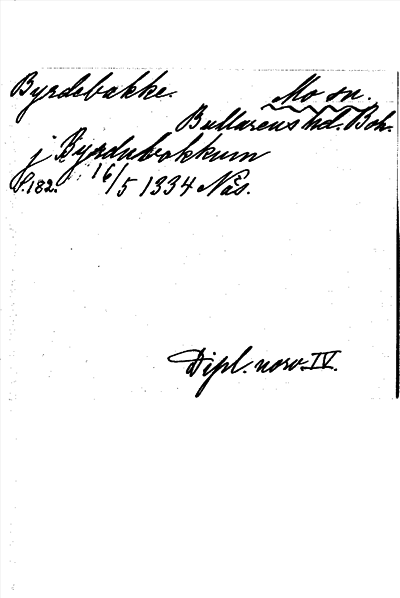 Byrdebakke. Mo sn.
Bullarens hd. Boh.
j Byrdubakkum
S. 182. 16/5 1334 Nås.
Dipl. norv. IV.